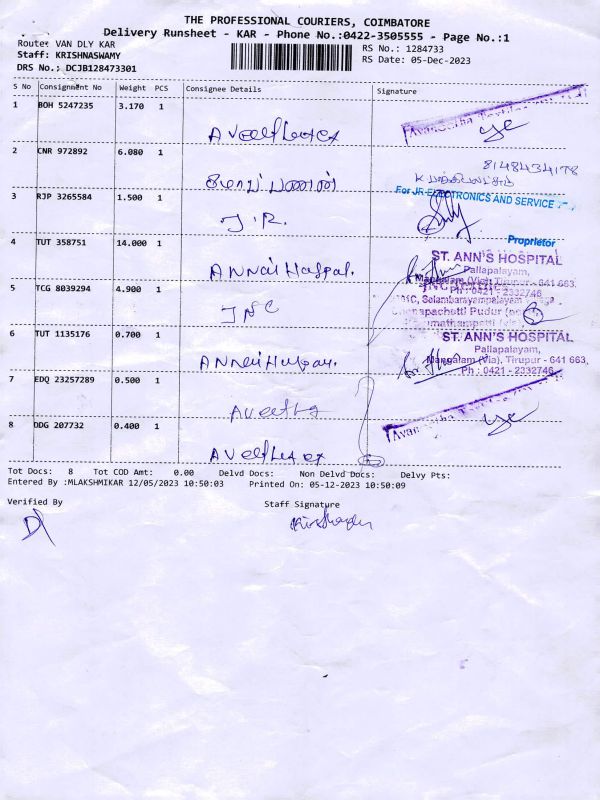 THE PROFESSIONAL COURIERS, COIMBATORE
Delivery Runsheet - KAR - Phone No.:0422-3505555 - Page No.:1
Route: VAN DLY KAR
RS No.: 1284733
Staff: KRISHNASWAMY
RS Date: 05-Dec-2023
DRS No.: DCJB128473301
S No Consignment No Weight PCS Consignee Details Signature
1 BOH 5247235 3.170 1
2 CNR 972892 6.080 1
8148434178
3 RJP 3265584 1.500 1 J.R.
For JR ELECTRONICS AND SERVICE
Proprietor
4 TUT 358751 14.000 1
ST. ANN'S HOSPITAL
Pallapalayam,
Mangalam (Via), Tirupur - 641 663.
Ph : 0421 - 2332746
5 TCG 8039294 4.900 1 JNC
6 TUT 1135176 0.700 1
ST. ANN'S HOSPITAL
Pallapalayam,
Mangalam (Via), Tirupur - 641 663,
Ph : 0421 - 2332746
7 EDQ 23257289 0.500 1
8 DDG 207732 0.400 1
Tot Docs: 8 Tot COD Amt: 0.00 Delvd Docs: Non Delvd Docs: Delvy Pts:
Entered By :MLAKSHMIKAR 12/05/2023 10:50:03 Printed On: 05-12-2023 10:50:09
Verified By Staff Signature